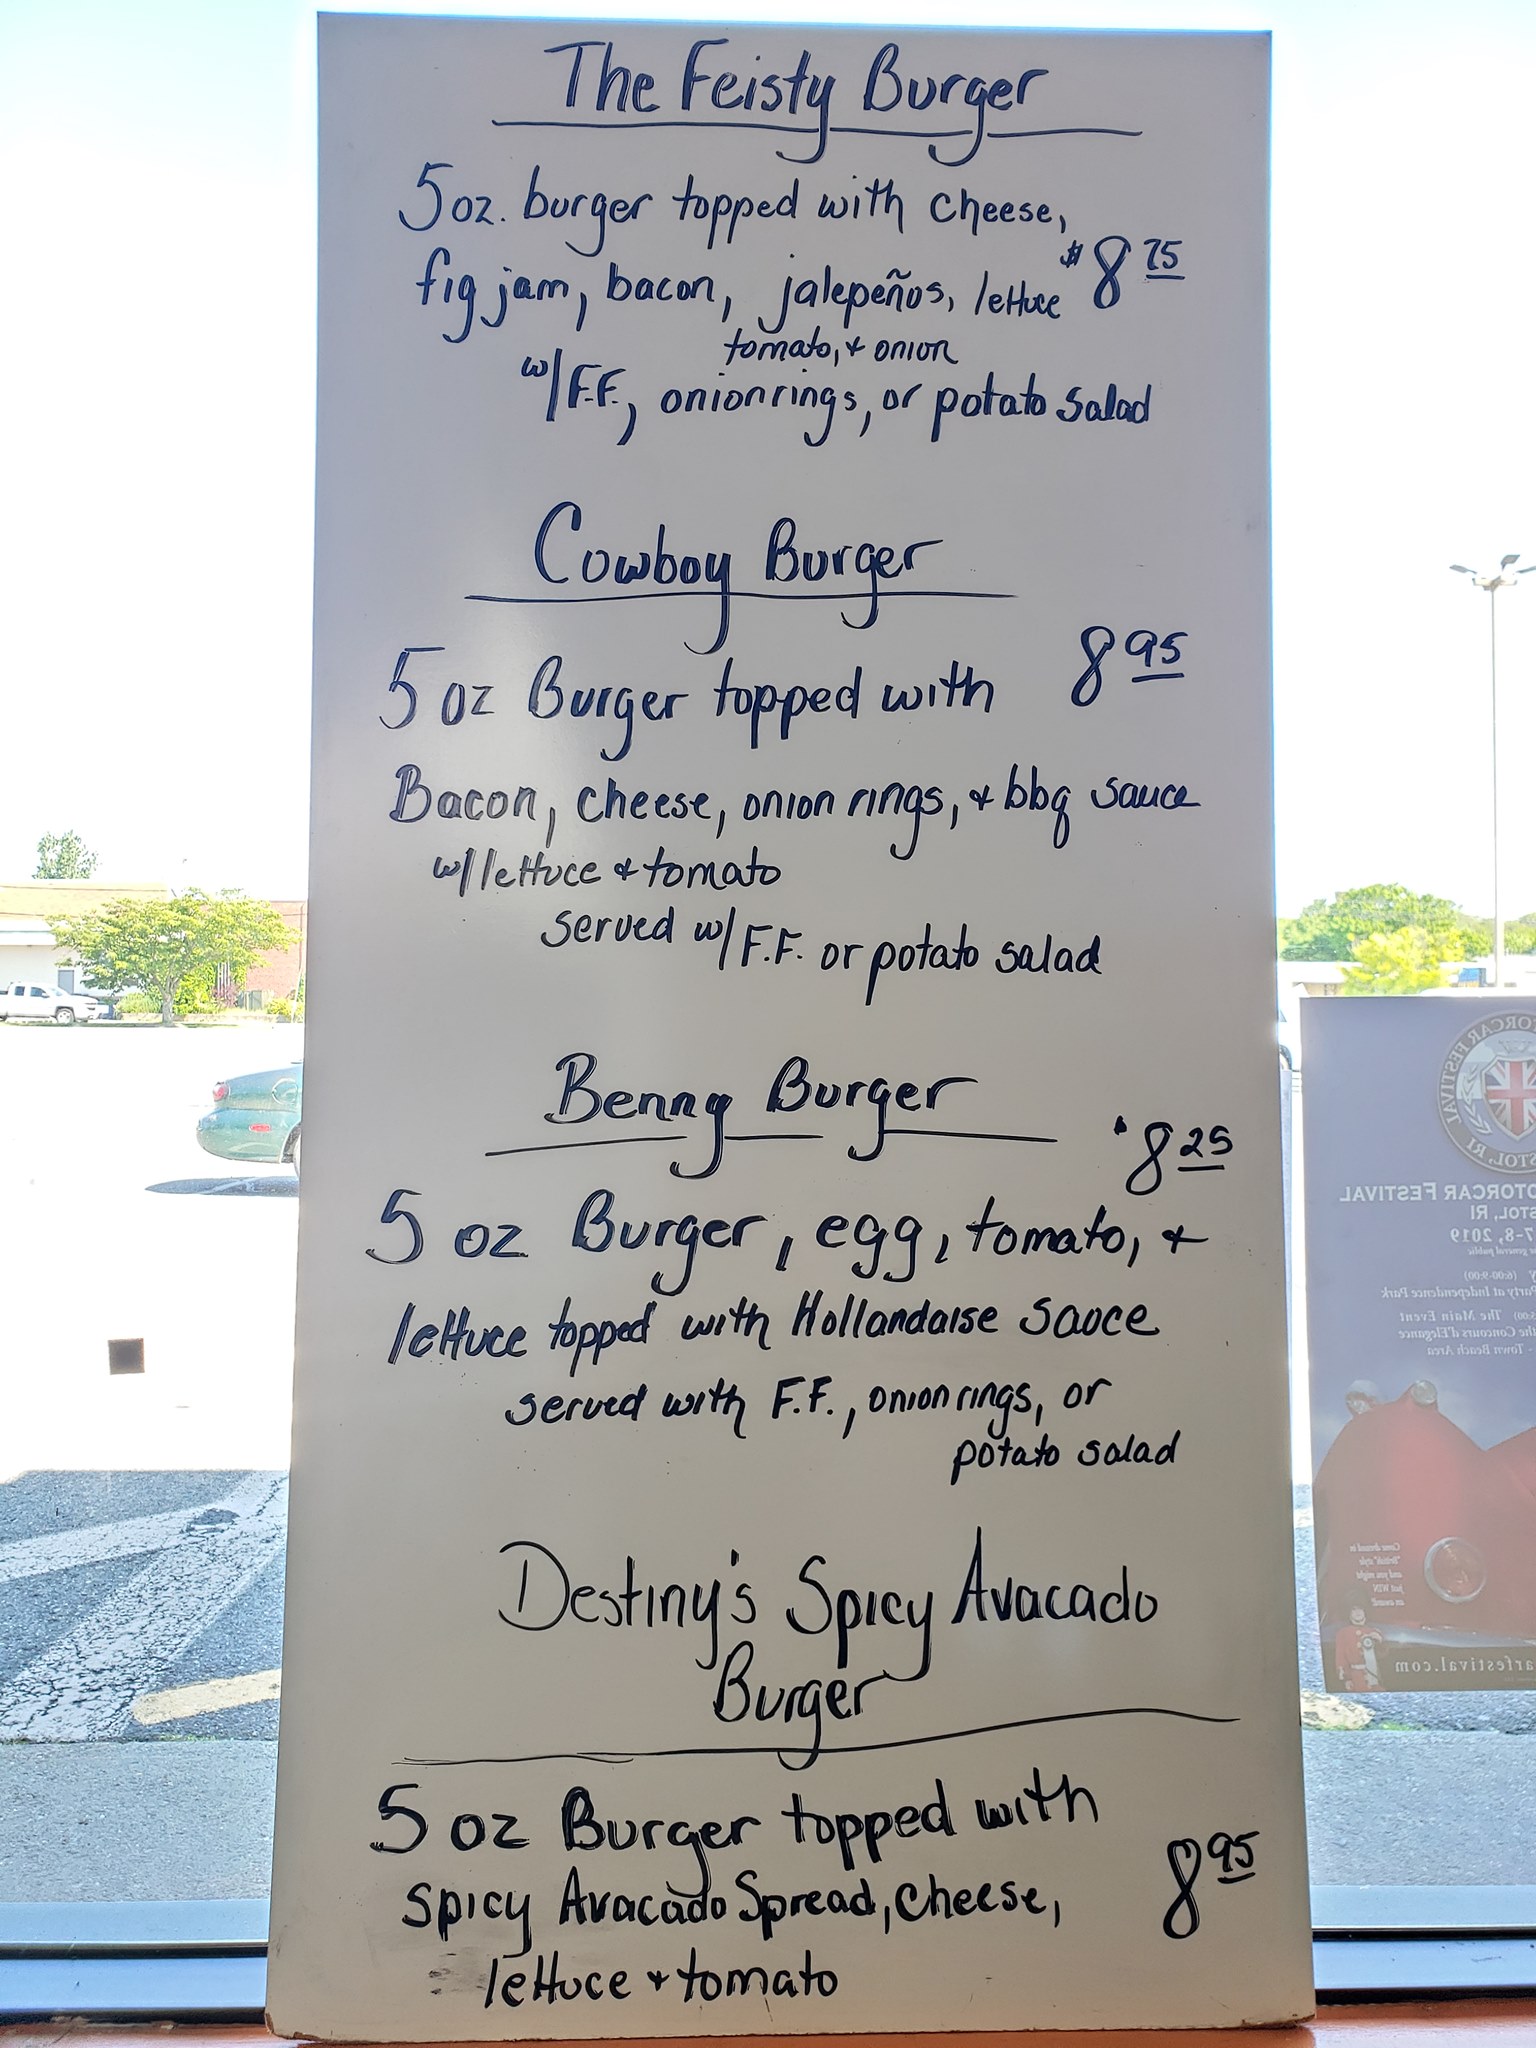 The Feisty Burger
5 oz. burger topped with cheese,
fig jam, bacon, jalepeños, lettuce $8 75
tomato, + onion
w/ F.F., onion rings, or potato salad
Cowboy Burger
8 95
5 oz Burger topped with
Bacon, cheese, onion rings, + bbq sauce
w/ lettuce + tomato
served w/ F.F. or potato salad
Benny Burger
$8 25
5 oz Burger, egg, tomato, +
lettuce topped with Hollandaise sauce
served with F.F., onion rings, or
potato salad
Destiny's Spicy Avacado
Burger
5 oz Burger topped with
spicy Avacado Spread, cheese, 8 95
lettuce + tomato
ORCAR FESTIVAL
STOL, RI
OTORCAR FESTIVAL
STOL, RI
7-8, 2019
general public
(6:00-9:00)
Party at Independence Park
The Main Event
the Concours d'Elegance
- Town Beach Area
Come dressed in
"British" style
and you might
just WIN
an award!
arfestival.com